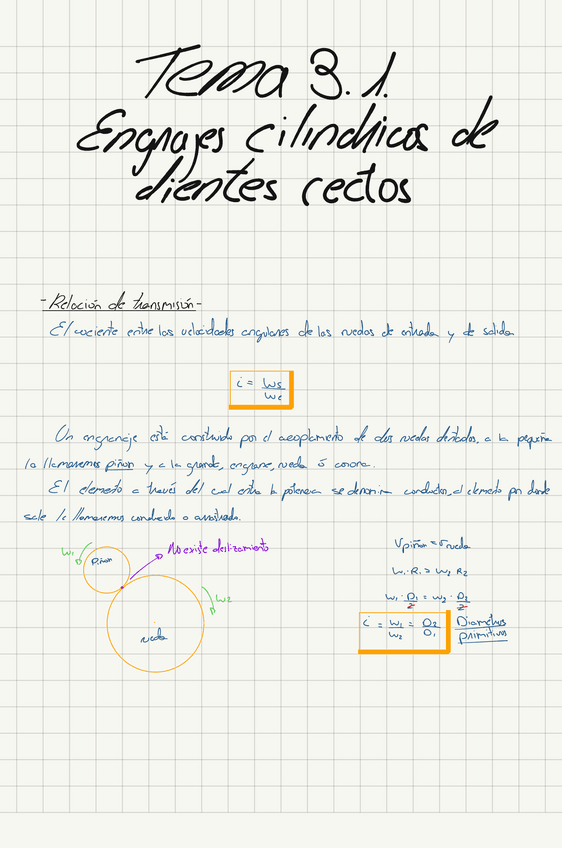 Tema 3.1.
Engranajes cilindricos de
dientes rectos
- Relación de transmisión -
El cociente entre las velocidades angulares de las ruedas de entrada y de salida
i = ws / we
Un engranaje está construido por el acoplamiento de dos ruedas dentadas, a la pequeña
la llamaremos piñon y a la grande, engrane, rueda ó corona.
El elemento a través del cual entra la potencia se denomina conductor, el elemento por donde
sale le llamaremos conducido o arrastrado.
w1 piñon No existe deslizamiento
w2
rueda
Vpiñon = Vrueda
w1·R1 = w2 R2
w1·D1/2 = w2·D2/2
i = w1/w2 = D2/D1 Diámetros
primitivos